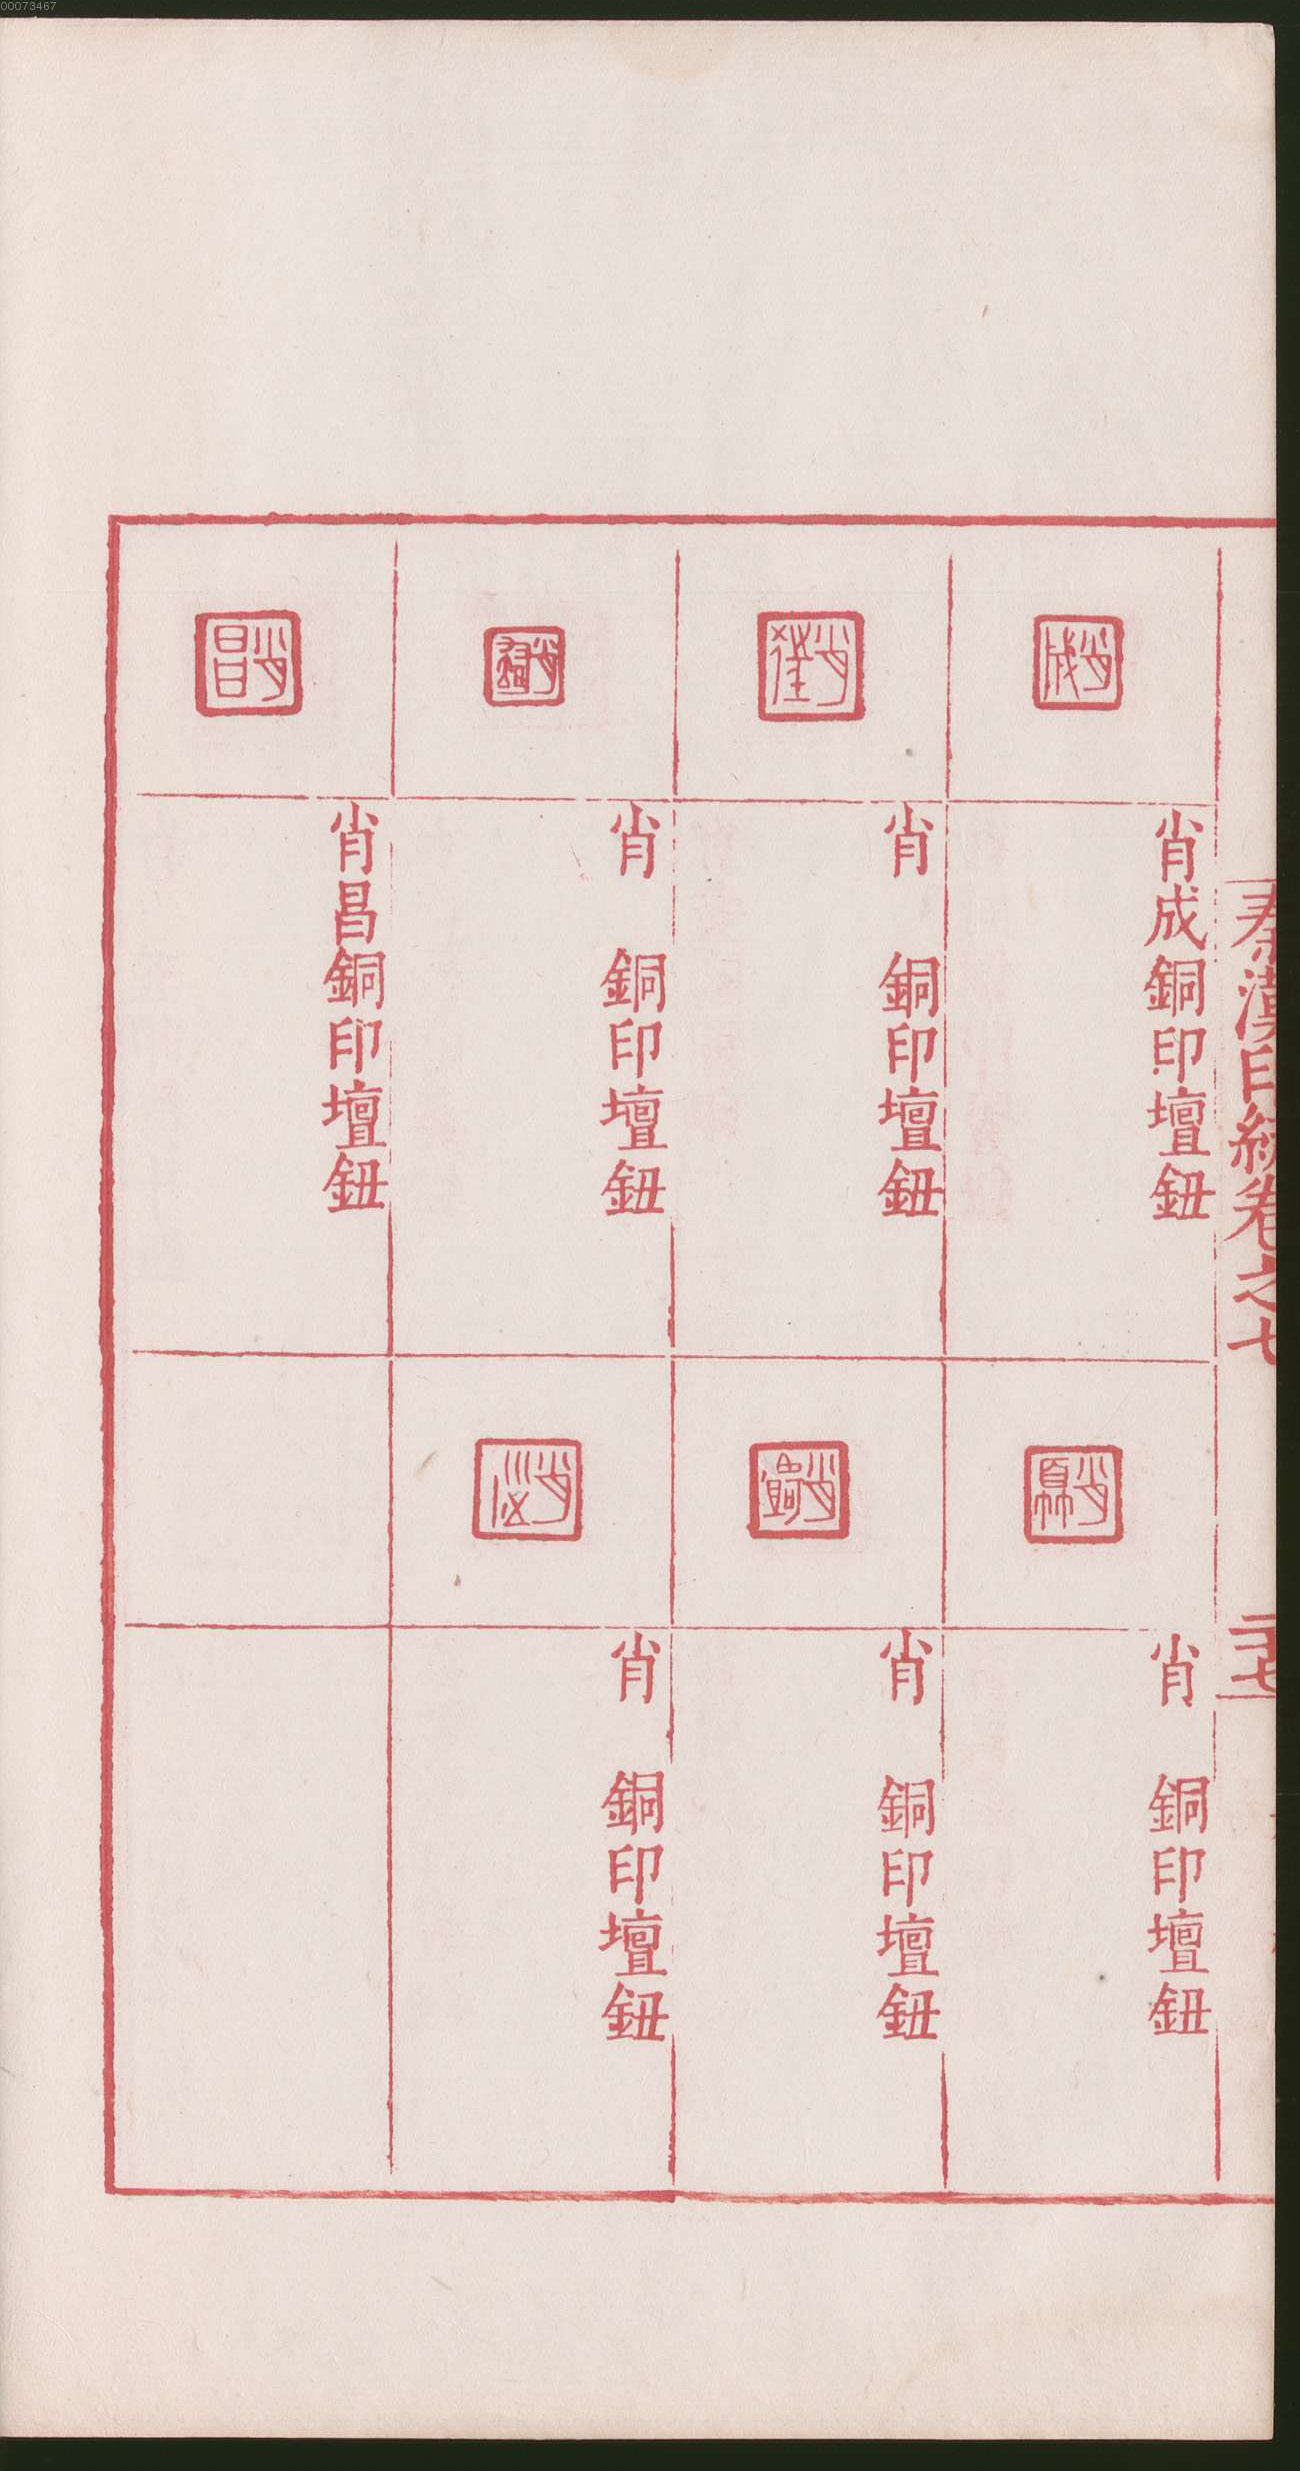 00073467
秦漢印統卷之七
二十七
肖成銅印壇鈕
肖 銅印壇鈕
肖 銅印壇鈕
肖昌銅印壇鈕
肖 銅印壇鈕
肖 銅印壇鈕
肖 銅印壇鈕